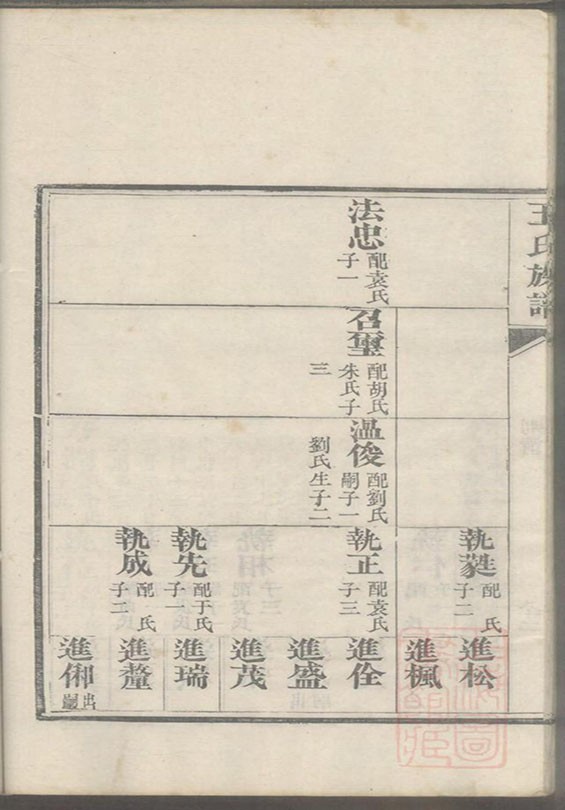 王氏族譜
法忠
配袁氏
子一
召璽
配胡氏
朱氏子
三
溫俊
配劉氏
嗣子一
劉氏生子二
執蕤
配 氏
子二
執正
配袁氏
子三
執先
配于氏
子一
執成
配 氏
子二
進松
進楓
進佺
進盛
進茂
進瑞
進釐
進俰
出嗣